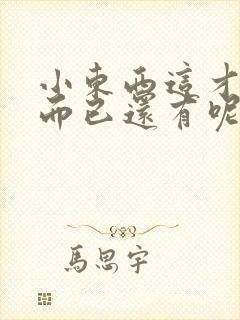 小東西這才
而已還有呢
馬思宇